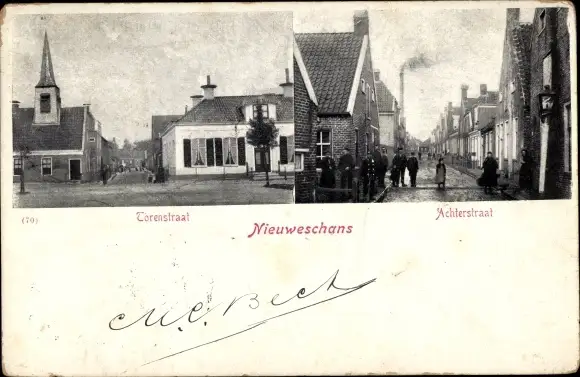 (70)
Torenstraat
Achterstraat
Nieuweschans
C. M. C. Beck